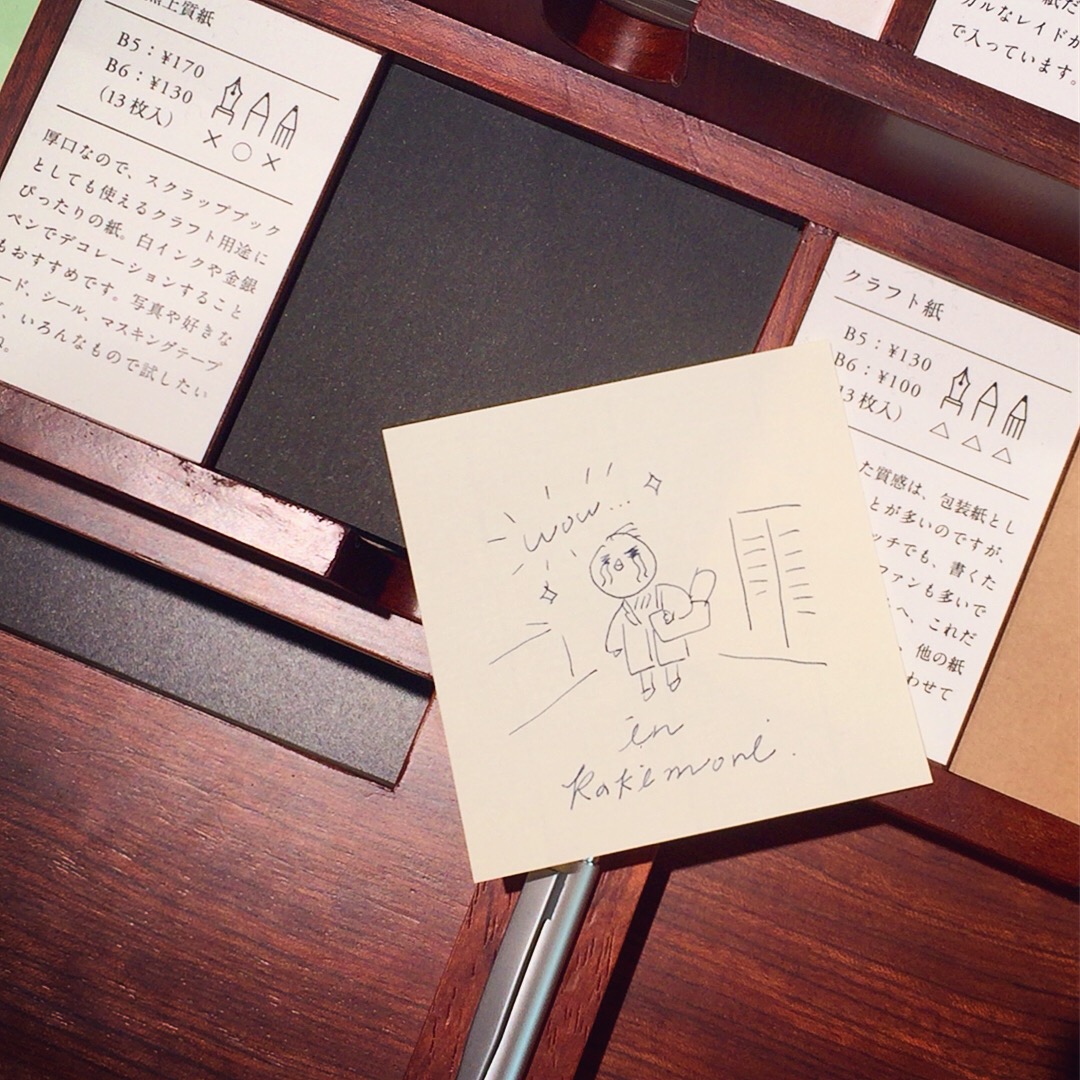 上質紙
B5：¥170
B6：¥130
(13枚入)
×○×
厚口なので、スクラップブック
としても使えるクラフト用途に
ぴったりの紙。白インクや金銀
ペンでデコレーションすること
もおすすめです。写真や好きな
ード、シール、マスキングテープ
、いろんなもので試したい
。
紙だ
カルなレイドが
で入っています。
クラフト紙
B5：¥130
B6：¥100
13枚入)
△△△
た質感は、包装紙とし
とが多いのですが、
ッチでも、書くた
ファンも多いで
へ、これだ
、他の紙
わせて
wow...
in
Kakimori.